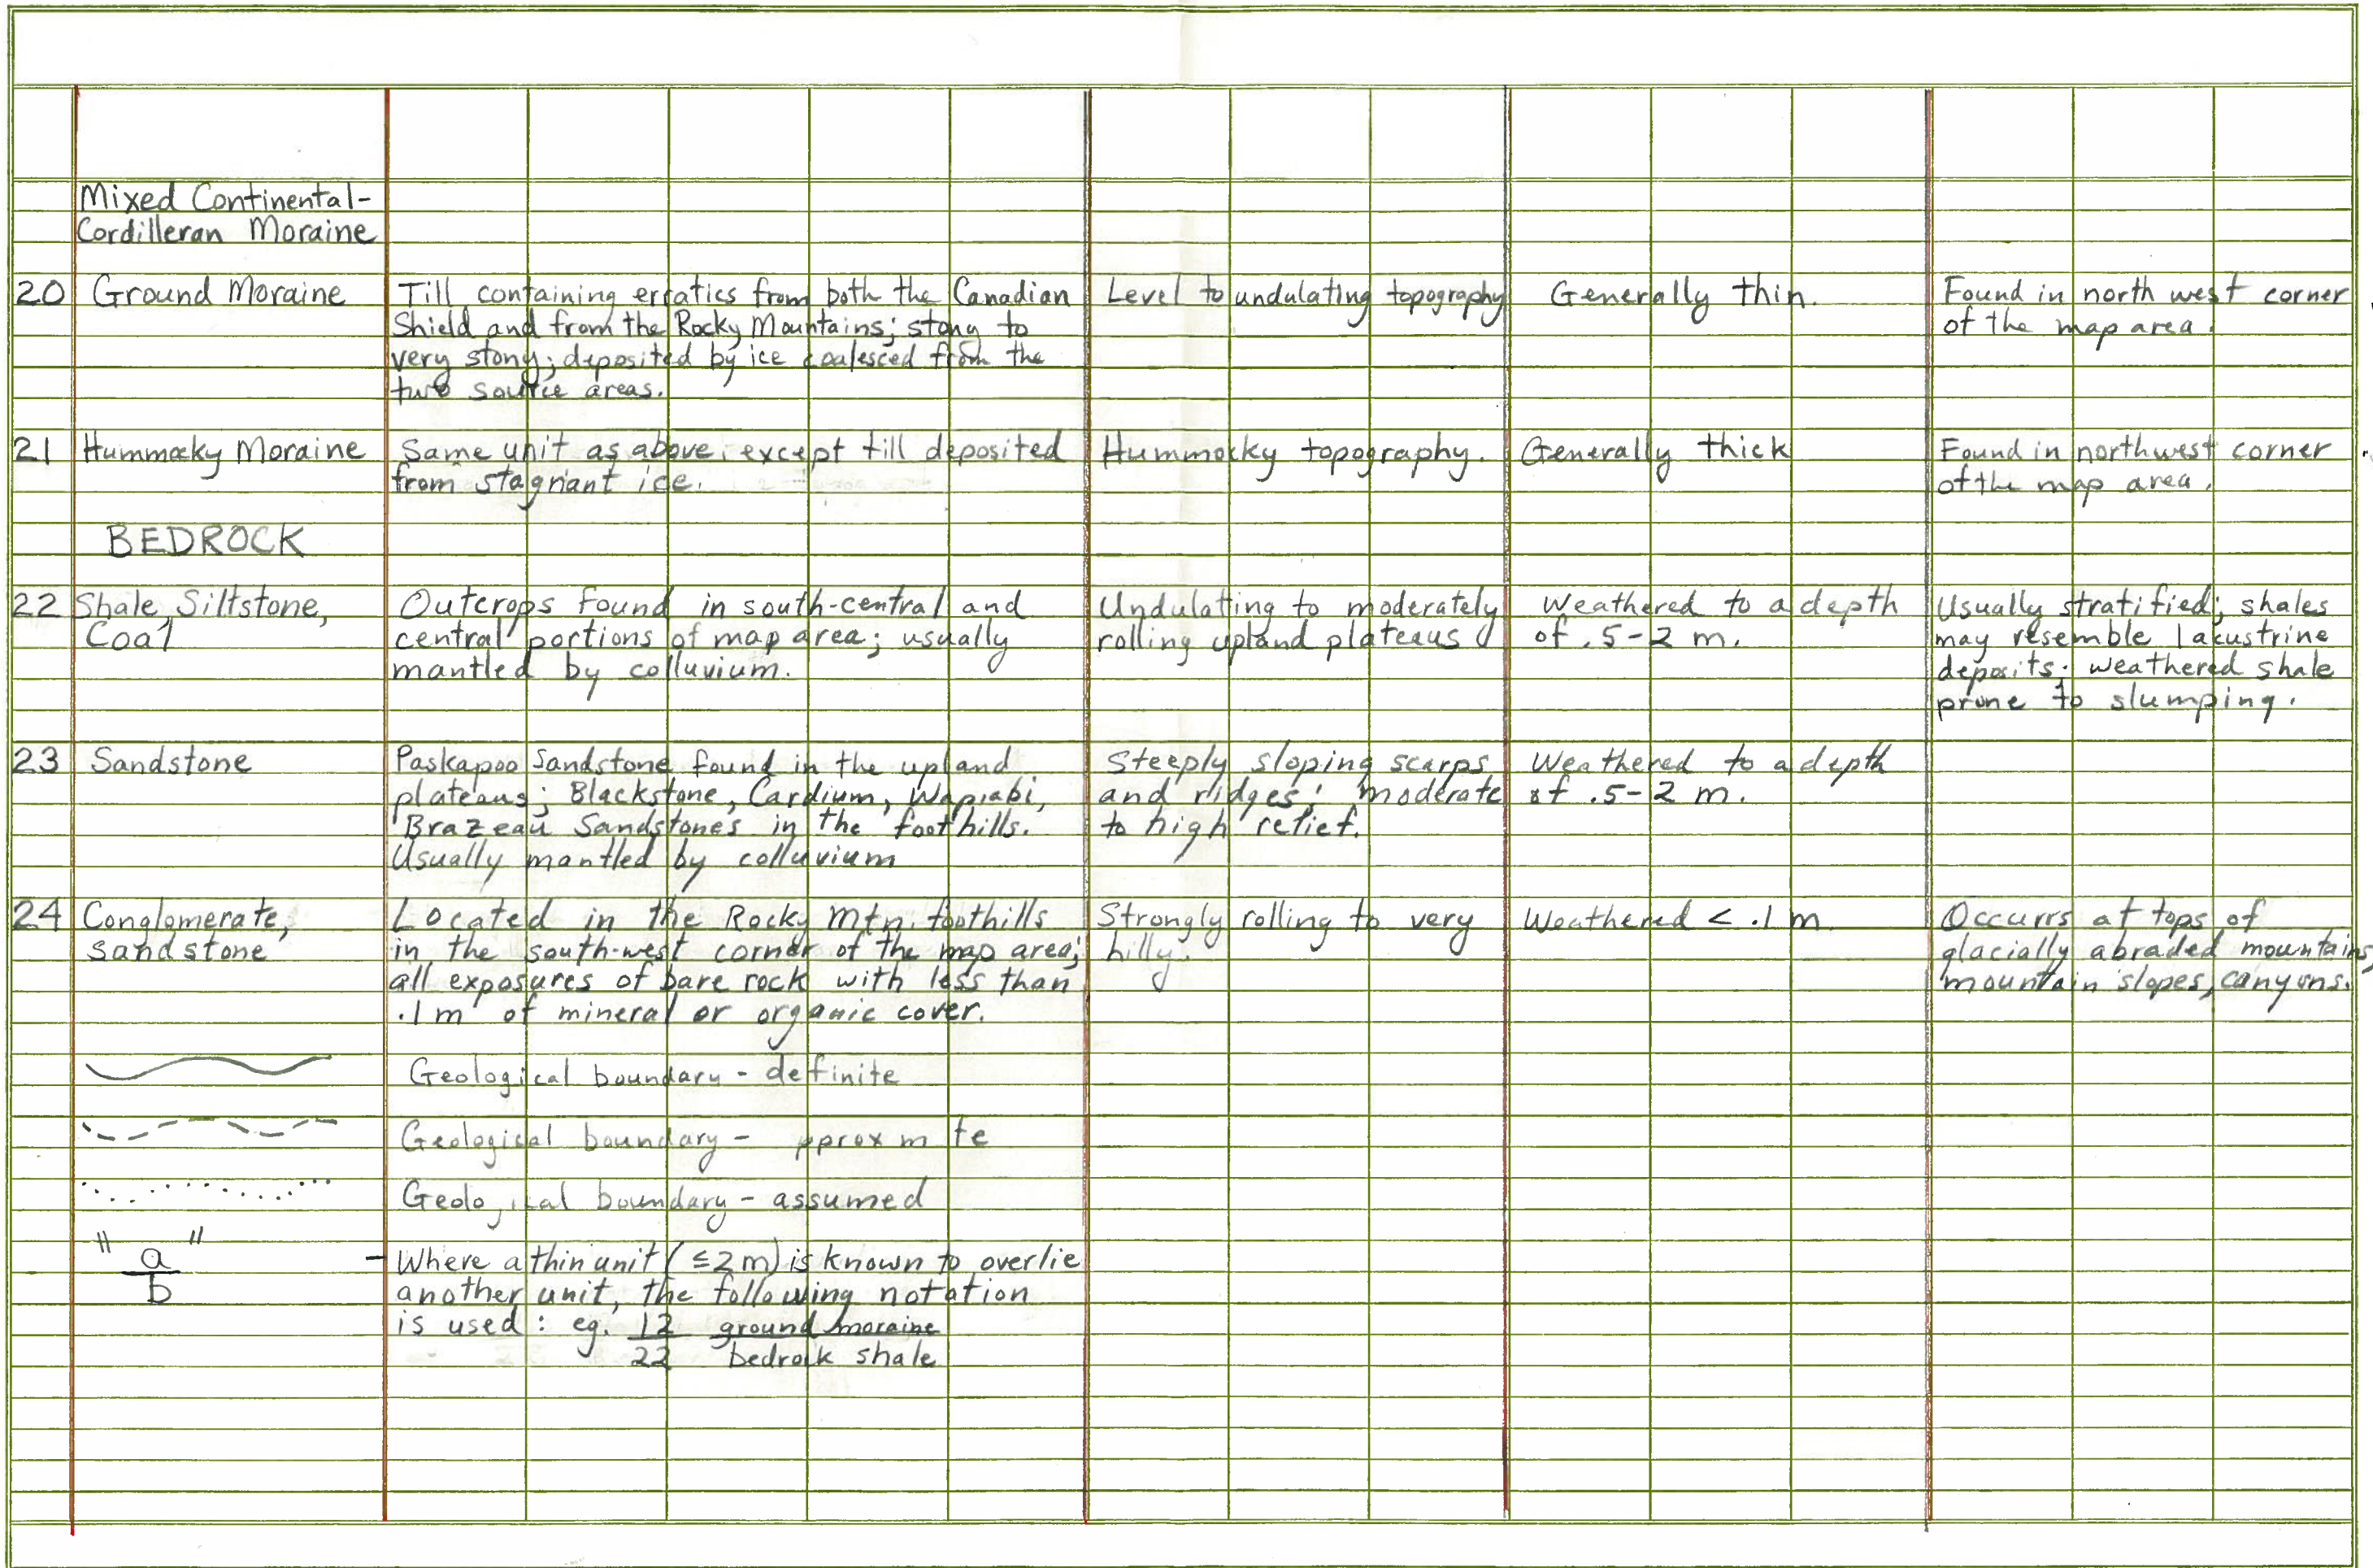 Mixed Continental-
Cordilleran Moraine
20 Ground Moraine
Till containing erratics from both the Canadian
Shield and from the Rocky Mountains; stony to
very stony; deposited by ice coalesced from the
two source areas.
Level to undulating topography
Generally thin.
Found in north west corner
of the map area.
21 Hummocky Moraine
Same unit as above, except till deposited
from stagnant ice.
Hummocky topography.
Generally thick
Found in northwest corner
of the map area.
BEDROCK
22 Shale, Siltstone,
Coal
Outcrops found in south-central and
central portions of map area; usually
mantled by colluvium.
Undulating to moderately
rolling upland plateaus
Weathered to a depth
of .5-2 m.
Usually stratified; shales
may resemble lacustrine
deposits; weathered shale
prone to slumping.
23 Sandstone
Paskapoo Sandstone found in the upland
plateaus; Blackstone, Cardium, Wapiabi,
Brazeau Sandstones in the foothills.
Usually mantled by colluvium
Steeply sloping scarps
and ridges; moderate
to high relief.
Weathered to a depth
of .5-2 m.
24 Conglomerate,
sandstone
Located in the Rocky Mtn. foothills
in the south-west corner of the map area;
all exposures of bare rock with less than
.1m of mineral or organic cover.
Strongly rolling to very
hilly.
Weathered < .1 m
Occurrs at tops of
glacially abraded mountains,
mountain slopes, canyons.
Geological boundary - definite
Geological boundary - pprox m te
Geolo ical boundary - assumed
" a "
b
- Where a thin unit (≤2m) is known to overlie
another unit, the following notation
is used: eg. 12 ground moraine
22 bedrock shale